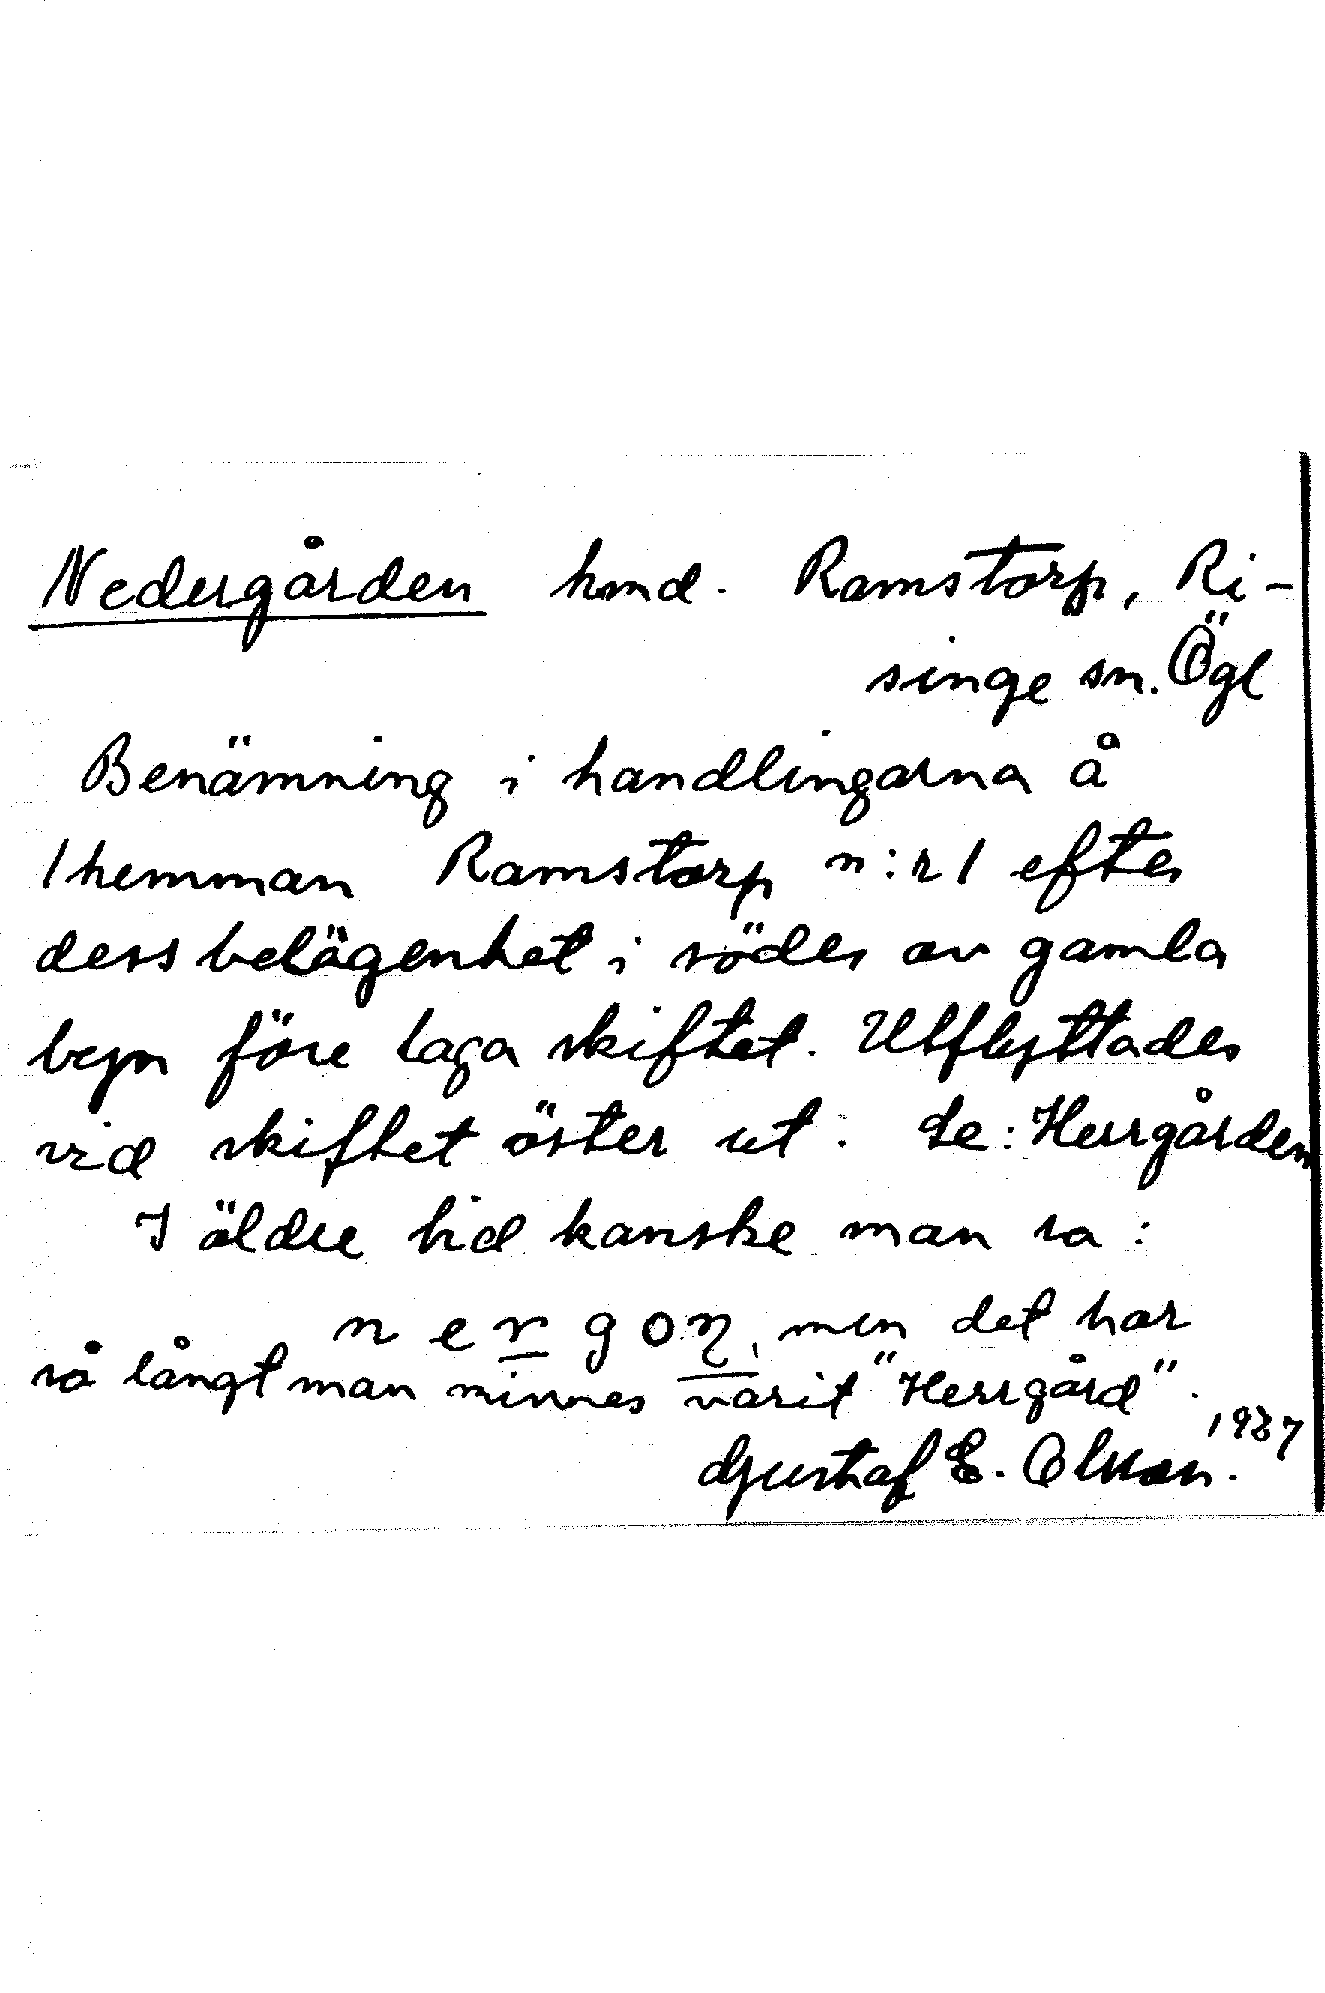 Nedergården hmd. Ramstorp, Ri-
singe sn. Ögl
Benämning i handlingarna å
1 hemman Ramstorp n:r 1 efter
dess belägenhet i söder av gamla
byn före laga skiftet. Utflyttades
vid skiftet öster ut. Se: Herrgården
I äldre tid kanske man sa:
nergoŋ, men det har
så långt man minnes varit "Herrgård".
1937
Gustaf E. Olsson.